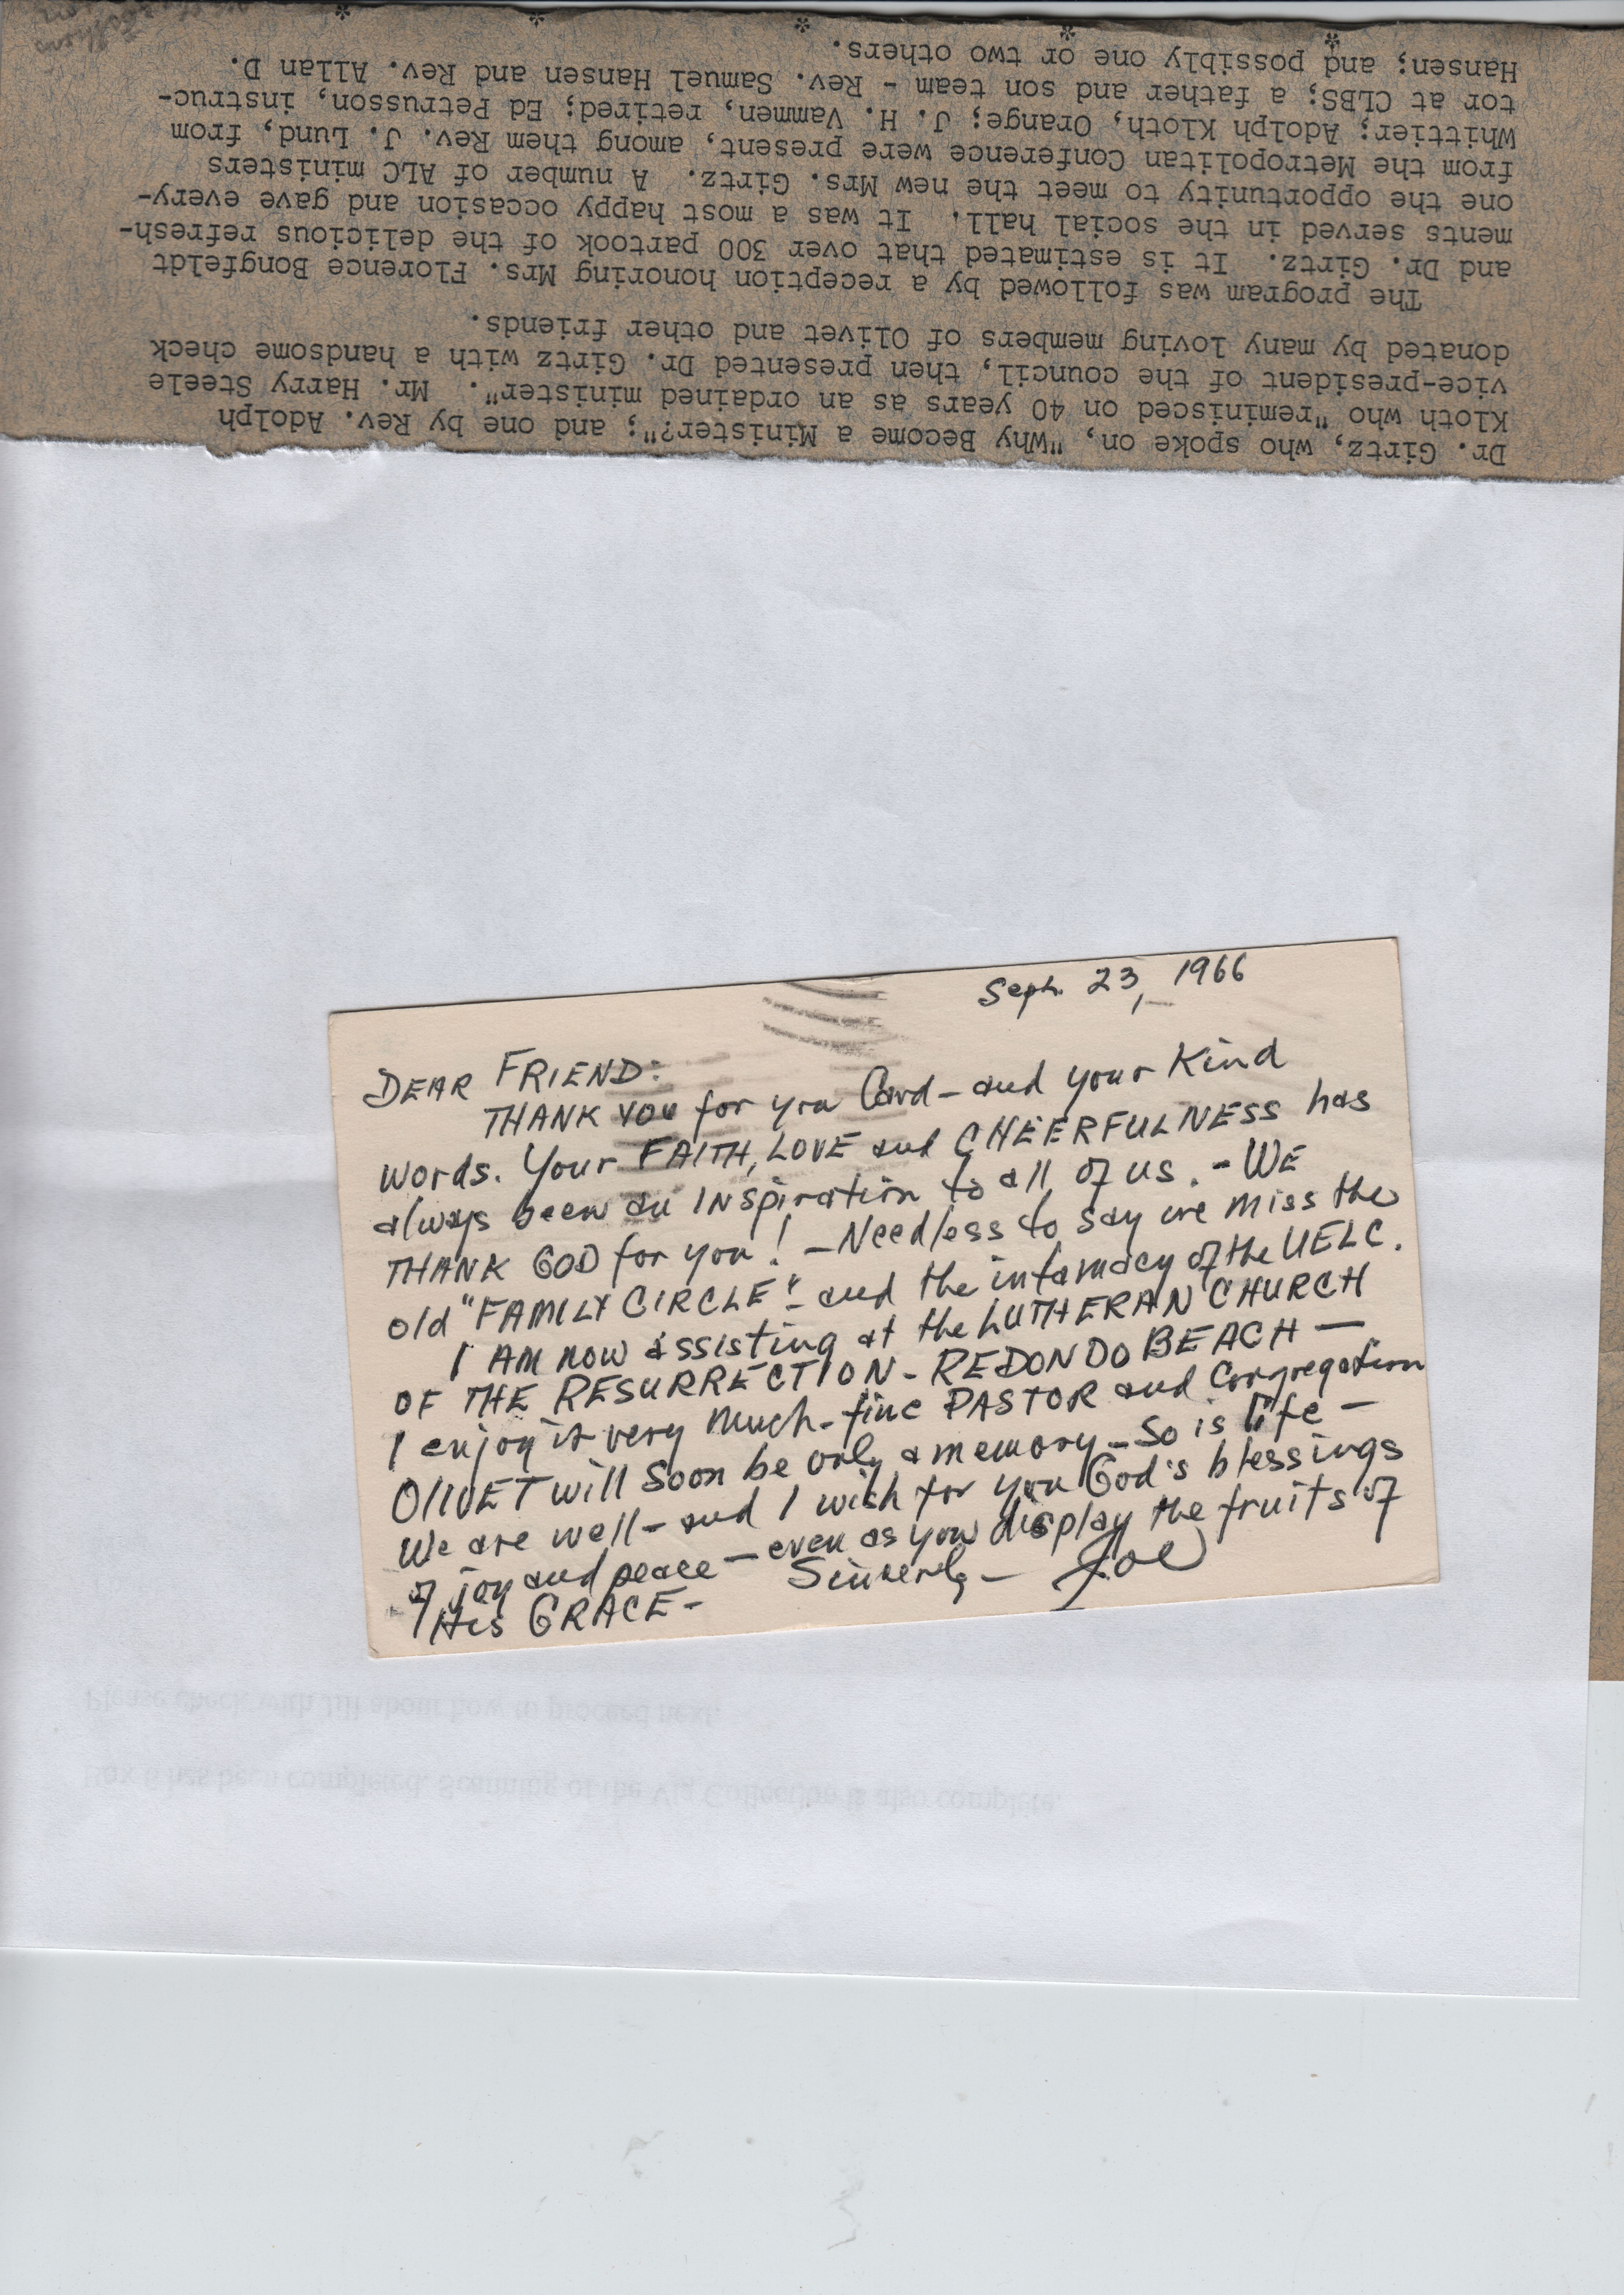 Dr. Girtz, who spoke on, "Why Become a Minister?"; and one by Rev. Adolph
Kloth who "reminisced on 40 years as an ordained minister". Mr. Harry Steele
vice-president of the council, then presented Dr. Girtz with a handsome check
donated by many loving members of Olivet and other friends.
The program was followed by a reception honoring Mrs. Florence Bongfeldt
and Dr. Girtz. It is estimated that over 300 partook of the delicious refresh-
ments served in the social hall. It was a most happy occasion and gave every-
one the opportunity to meet the new Mrs. Girtz. A number of ALC ministers
from the Metropolitan Conference were present, among them Rev. J. Lund, from
Whittier; Adolph Kloth, Orange; J. H. Vammen, retired; Ed Petrusson, instruc-
tor at CLBS; a father and son team - Rev. Samuel Hansen and Rev. Allan D.
Hansen; and possibly one or two others.
* * * * *
Sept. 23, 1966
DEAR FRIEND:
THANK YOU for you Card - and your Kind
words. Your FAITH, LOVE and CHEERFULNESS has
always been an INspiration to all of us. - WE
THANK GOD for you! - Needless to say we miss the
old "FAMILY CIRCLE" - and the intamacy of the UELC.
I AM now assisting at the LUTHERAN CHURCH
OF THE RESURRECTION - REDONDO BEACH -
I enjoy it very much - fine PASTOR and Congregation
OlIVET will soon be only a memory - So is life -
We are well - and I wish for you God's blessings
of joy and peace - even as you display the fruits of
His GRACE - Sincerely - Joe
Please check with Jill about how to proceed next.
Box 6 has been completed. Scanning of the Vig Collection is also complete.